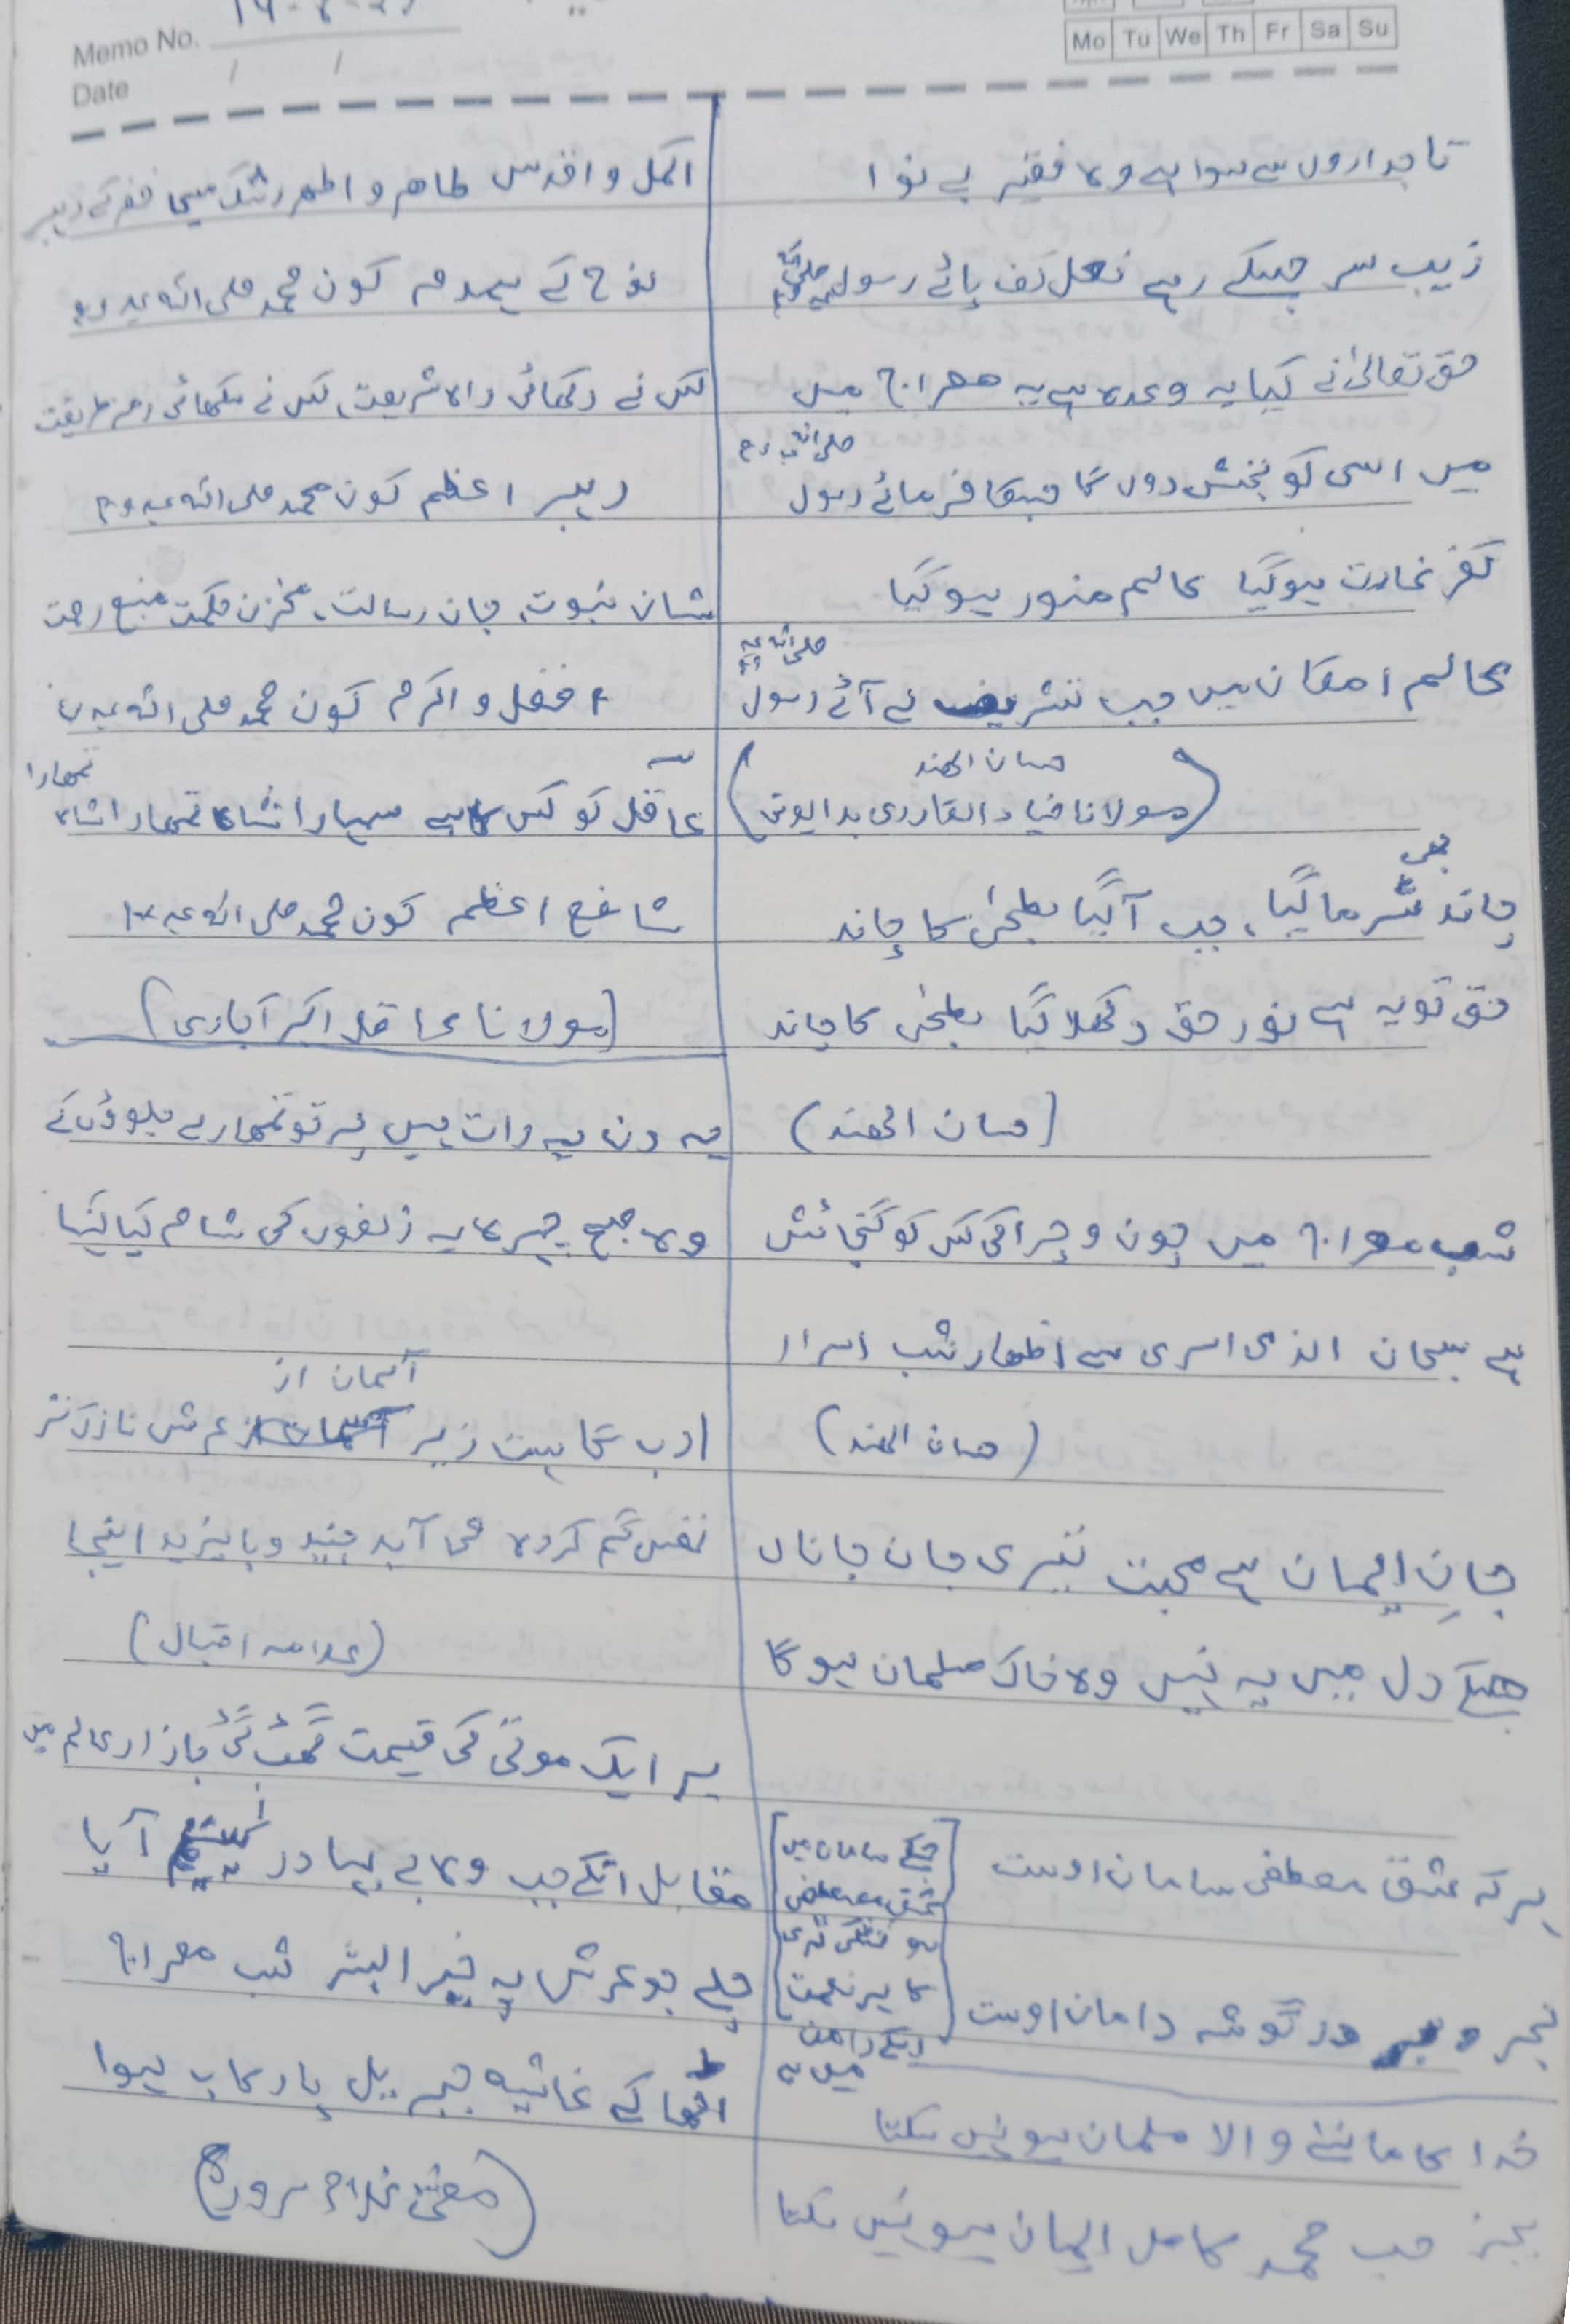 Memo No.
Date / /
Mo Tu We Th Fr Sa Su
تاجداروں سے سوا ہے وہ فقیر بے نوا
زیب سر جسکے رہے نعل کف پائے رسول صلی اللہ علیہ وسلم
حق تعالیٰ نے کیا یہ وعدہ ہے یہ معراج میں
میں اسی کو بخش دوں گا جسکا فرمائے رسول صلی اللہ علیہ وسلم
کفر غارت ہوگیا عالم منور ہوگیا
عالم امکان میں جب تشریف لے آئے رسول صلی اللہ علیہ وسلم
حسان الہند
(مولانا ضیاء القادری بدایونی)
چاند بھی شرما گیا، جب آگیا بطحیٰ کا چاند
حق تو یہ ہے نور حق دکھلا گیا بطحیٰ کا چاند
(حسان الھند)
شب معراج میں چون و چرا کی کس کو گنجائش
ہے سبحان الذی اسری سے اظہار شب اسرا
(حسان الھند)
جانِ ایمان ہے محبت تیری جان جاناں
جسکے دل میں یہ نہیں وہ خاک مسلمان ہوگا
ہر کہ عشق مصطفی سامان اوست
بحر و بر در گوشہ دامان اوست
[جسکے سامان میں
عشق مصطفی
ہو خشکی تری
کا ہر نعمت
اسکے دامن
میں ہے]
خدا کا ماننے والا مسلمان ہو نہیں سکتا
بجز حب محمد کامل ایمان ہو نہیں سکتا
اکمل و اقدس طاہر و اطہر رشک مسیحا خضر کے رہبر
نوح کے ہمدم کون محمد صلی اللہ علیہ وسلم
کس نے دکھائی راہ شریعت، کس نے سکھائی رمز طریقت
رہبر اعظم کون محمد صلی اللہ علیہ وسلم
شان نبوت، جان رسالت، مخزن حکمت منبع رحمت
افضل و اکرم کون محمد صلی اللہ علیہ وسلم
عاقل کو کس کا ہے سہارا شاہ تمہارا شاہ تمہارا
شافع اعظم کون محمد صلی اللہ علیہ وسلم
(مولانا عاقل اکبر آبادی)
یہ دن یہ رات ہیں پرتو تمھارے جلوؤں کے
وہ صبح چہرہ یہ زلفوں کی شام کیا کہنا
ادب گاہیست زیر آسمان از عرش نازک تر
نفس گم کردہ می آید جنید و بایزید اینجا
(علامہ اقبال)
ہر ایک موتی کی قیمت گھٹ گئی بازار عالم میں
مقابل انکے جب وہ بے بہا در یتیم آیا
چلے جو عرش پہ خیر البشر شب معراج
اٹھا کے غاشیہ جبریل پا رکاب ہوا
(مفتی غلام سرور)